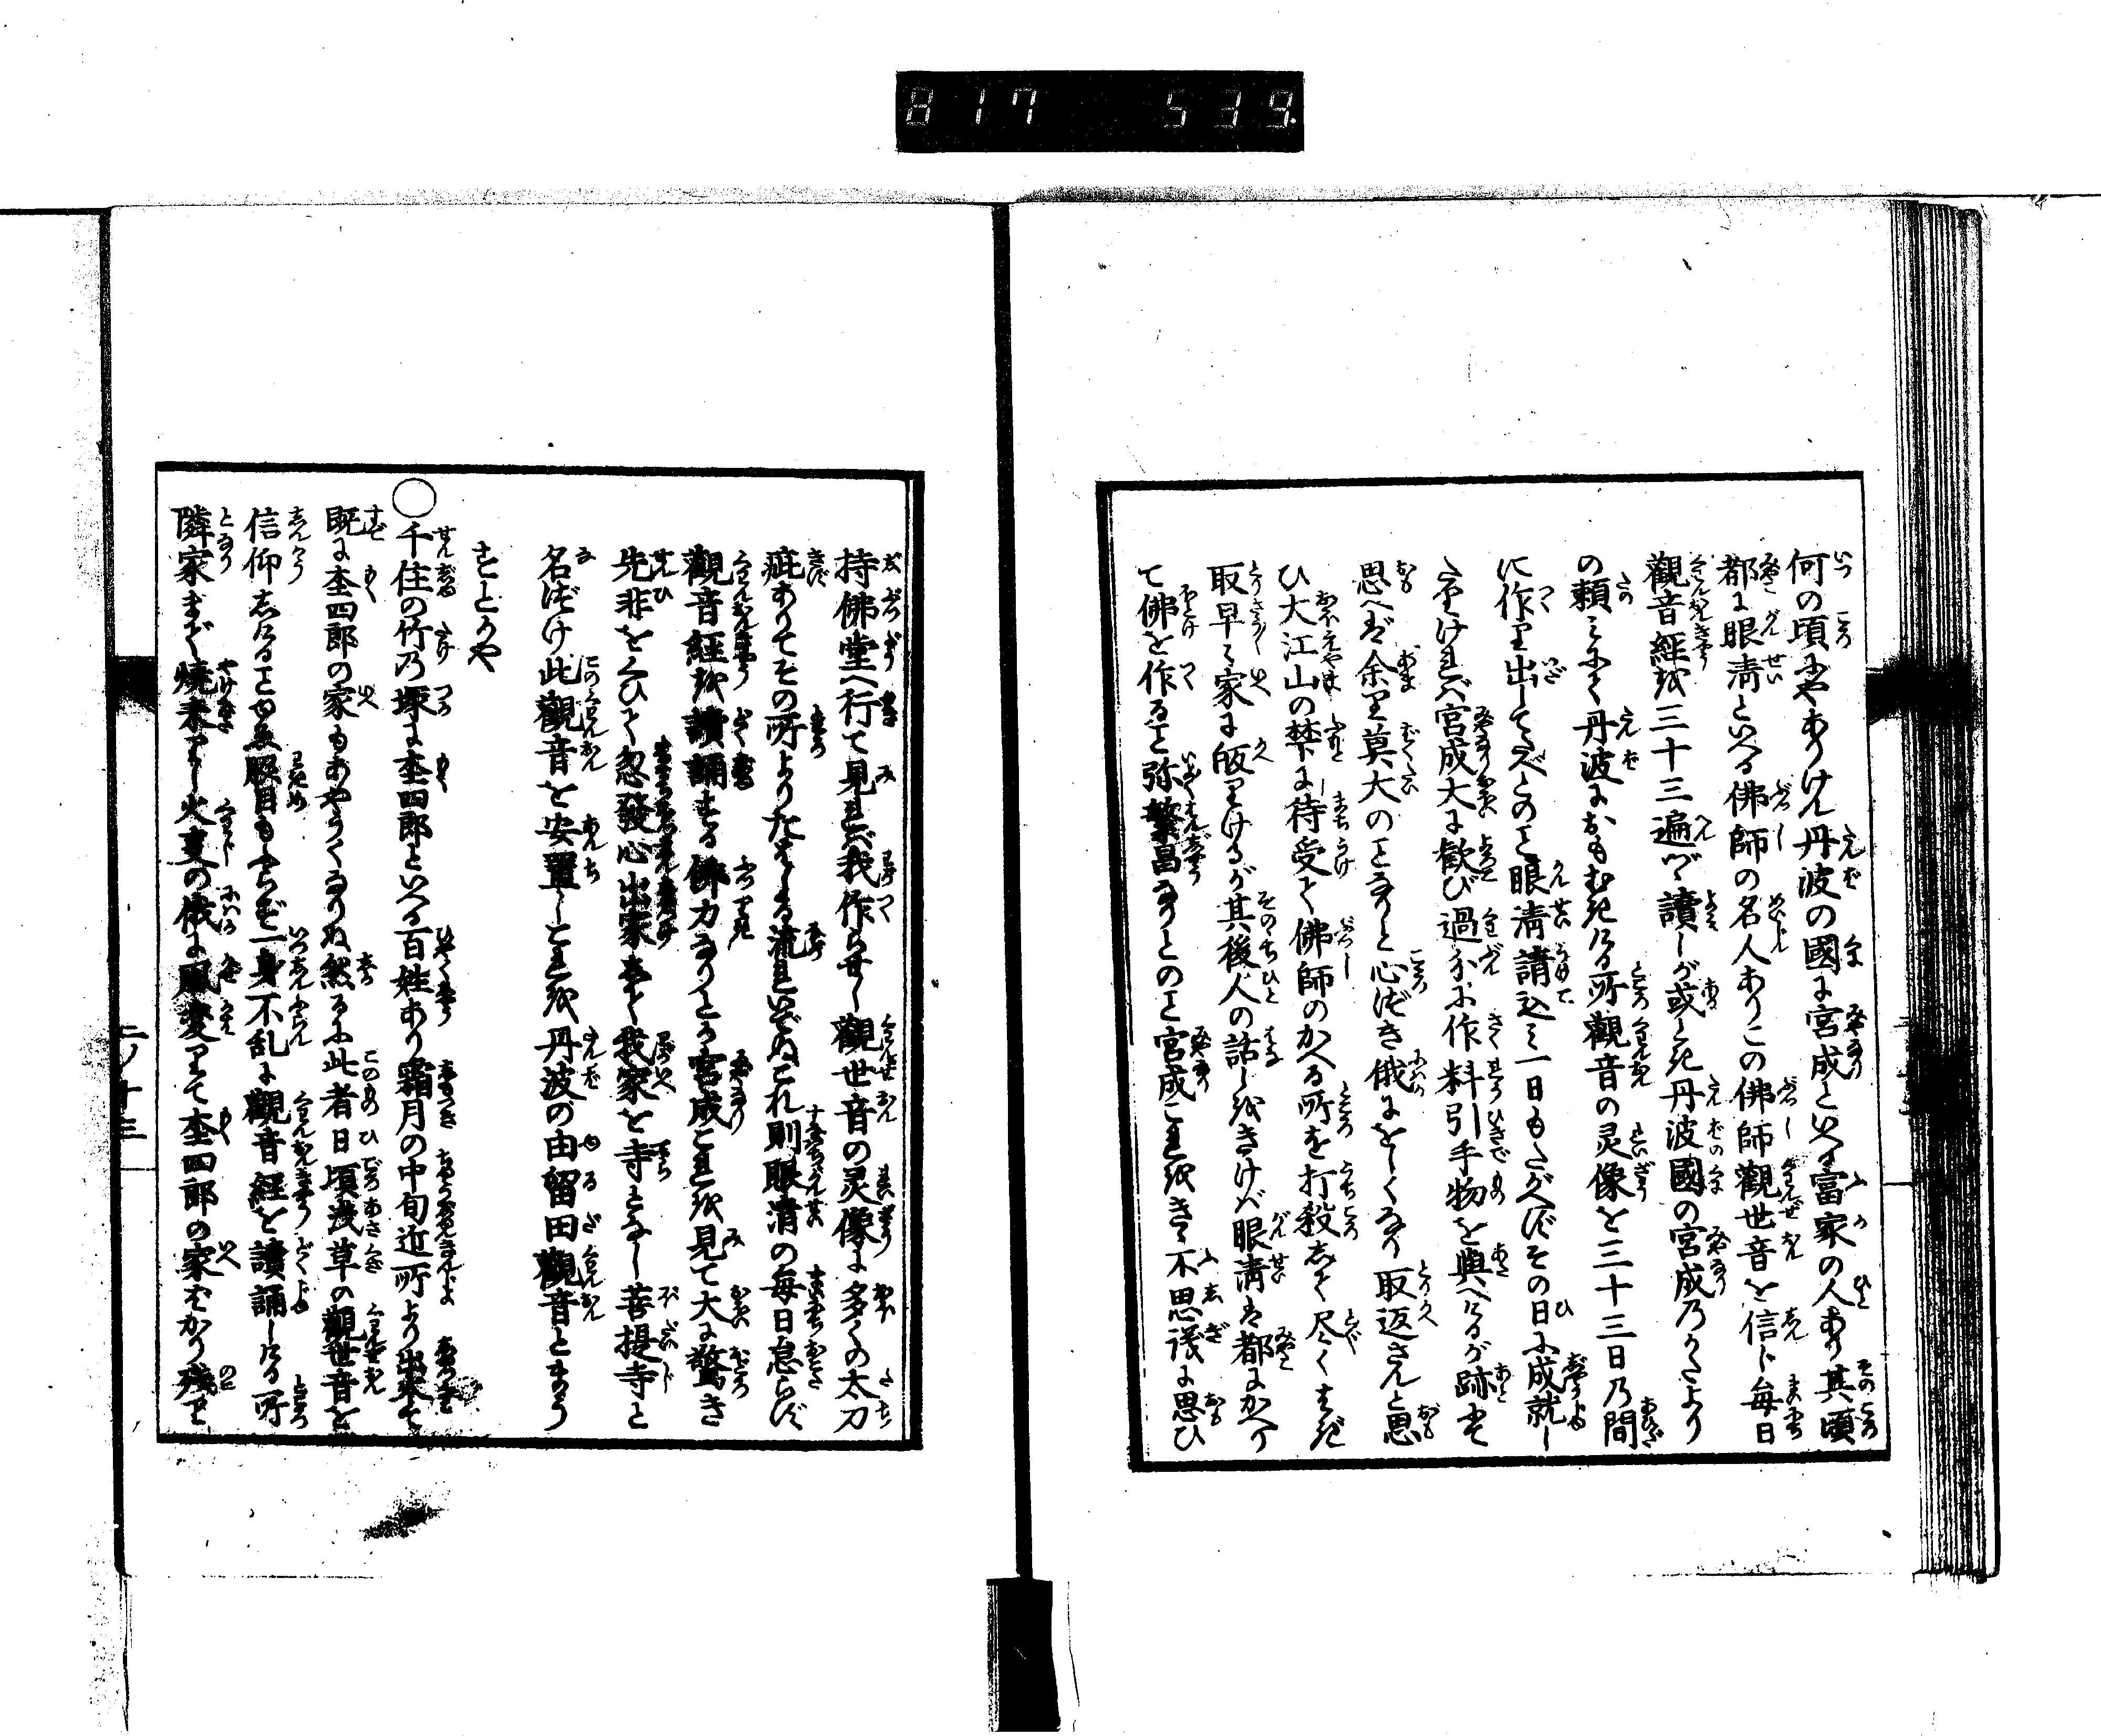 817 539.
何の頃にやありけん丹波の國に宮成といふ富家の人あり其頃
都に眼淸といへる佛師の名人ありこの佛師觀世音を信じ毎日
觀音經を三十三遍づゝ讀しが或とき丹波國の宮成のかたより
の頼みにて丹波におもむきける所觀音の灵像を三十三日の間
に作り出してたべとのこと眼淸請込み一日もたがへずその日に成就し
たりければ宮成大に歓び過分に作料引手物を與へけるが跡にて
思へば余り莫大のことなりと心づき俄にをしくなり取返さんと思
ひ大江山の梺に待受て佛師のかへる所を打殺して尽くはぎ
取早く家に皈りけるが其後人の話しをきけば眼淸は都にかへり
て佛を作ること弥繁昌なりとのこと宮成これをきゝ不思議に思ひ
持佛堂へ行て見れば我作らせし觀世音の灵像に多くの太刀
疵ありてその所よりたへる流れいでぬこれ則眼淸の毎日怠らず
觀音經を讀誦する佛力なりとる宮成これを見て大に驚き
先非をくひて忽發心出家して我家を寺となし菩提寺と
名づけ此觀音を安置しこれを丹波の由留田觀音とまうす
さとかや
○千住の竹の塚に杢四郎といへる百姓あり霜月の中旬近所より出来て
既に杢四郎の家もあやうくなりぬ然るに此者日頃浅草の觀世音を
信仰しけることゆゑ脇目もふらず一身不乱に觀音経を讀誦しける所
隣家まで焼来りし火叓の俄に風変りて杢四郎の家ばかり残り
二ノ十三